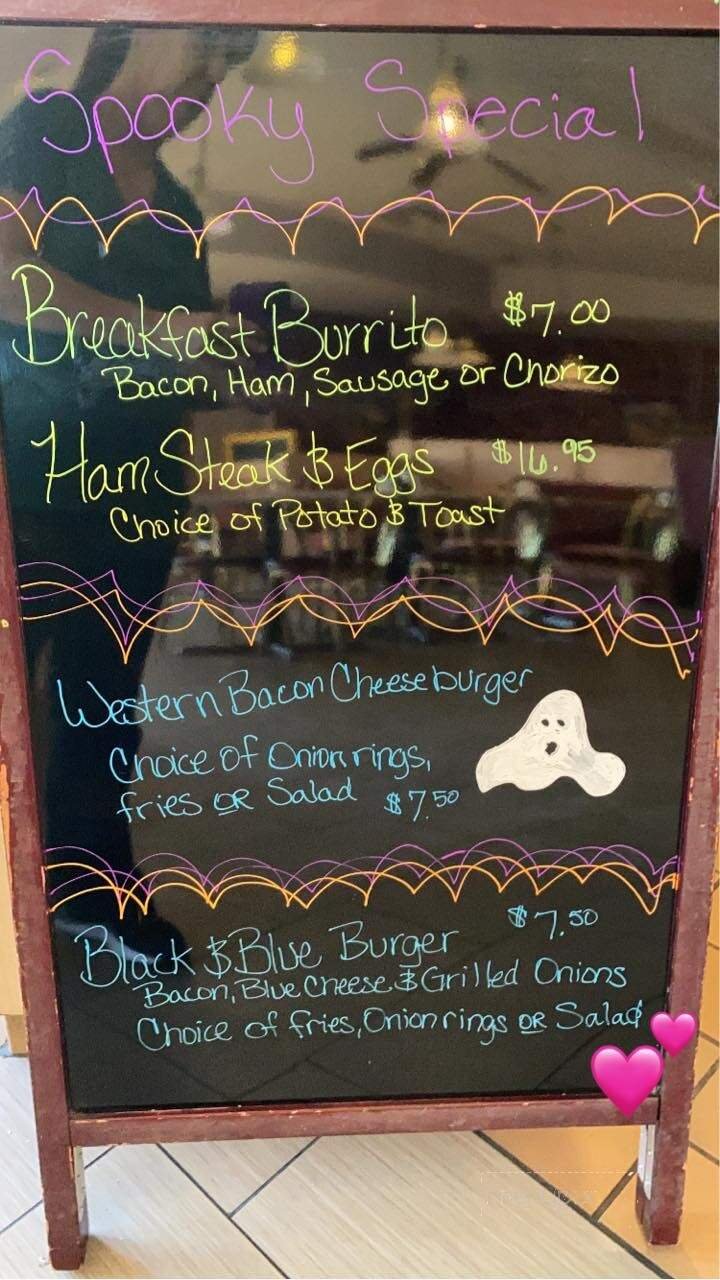 Spooky Special
Breakfast Burrito $7.00
Bacon, Ham, Sausage or Chorizo
Ham Steak & Eggs $16.95
Choice of Potato & Toast
Western Bacon Cheeseburger
Choice of Onion rings,
fries OR Salad $7.50
Black & Blue Burger $7.50
Bacon, Blue Cheese & Grilled Onions
Choice of fries, Onion rings OR Salad